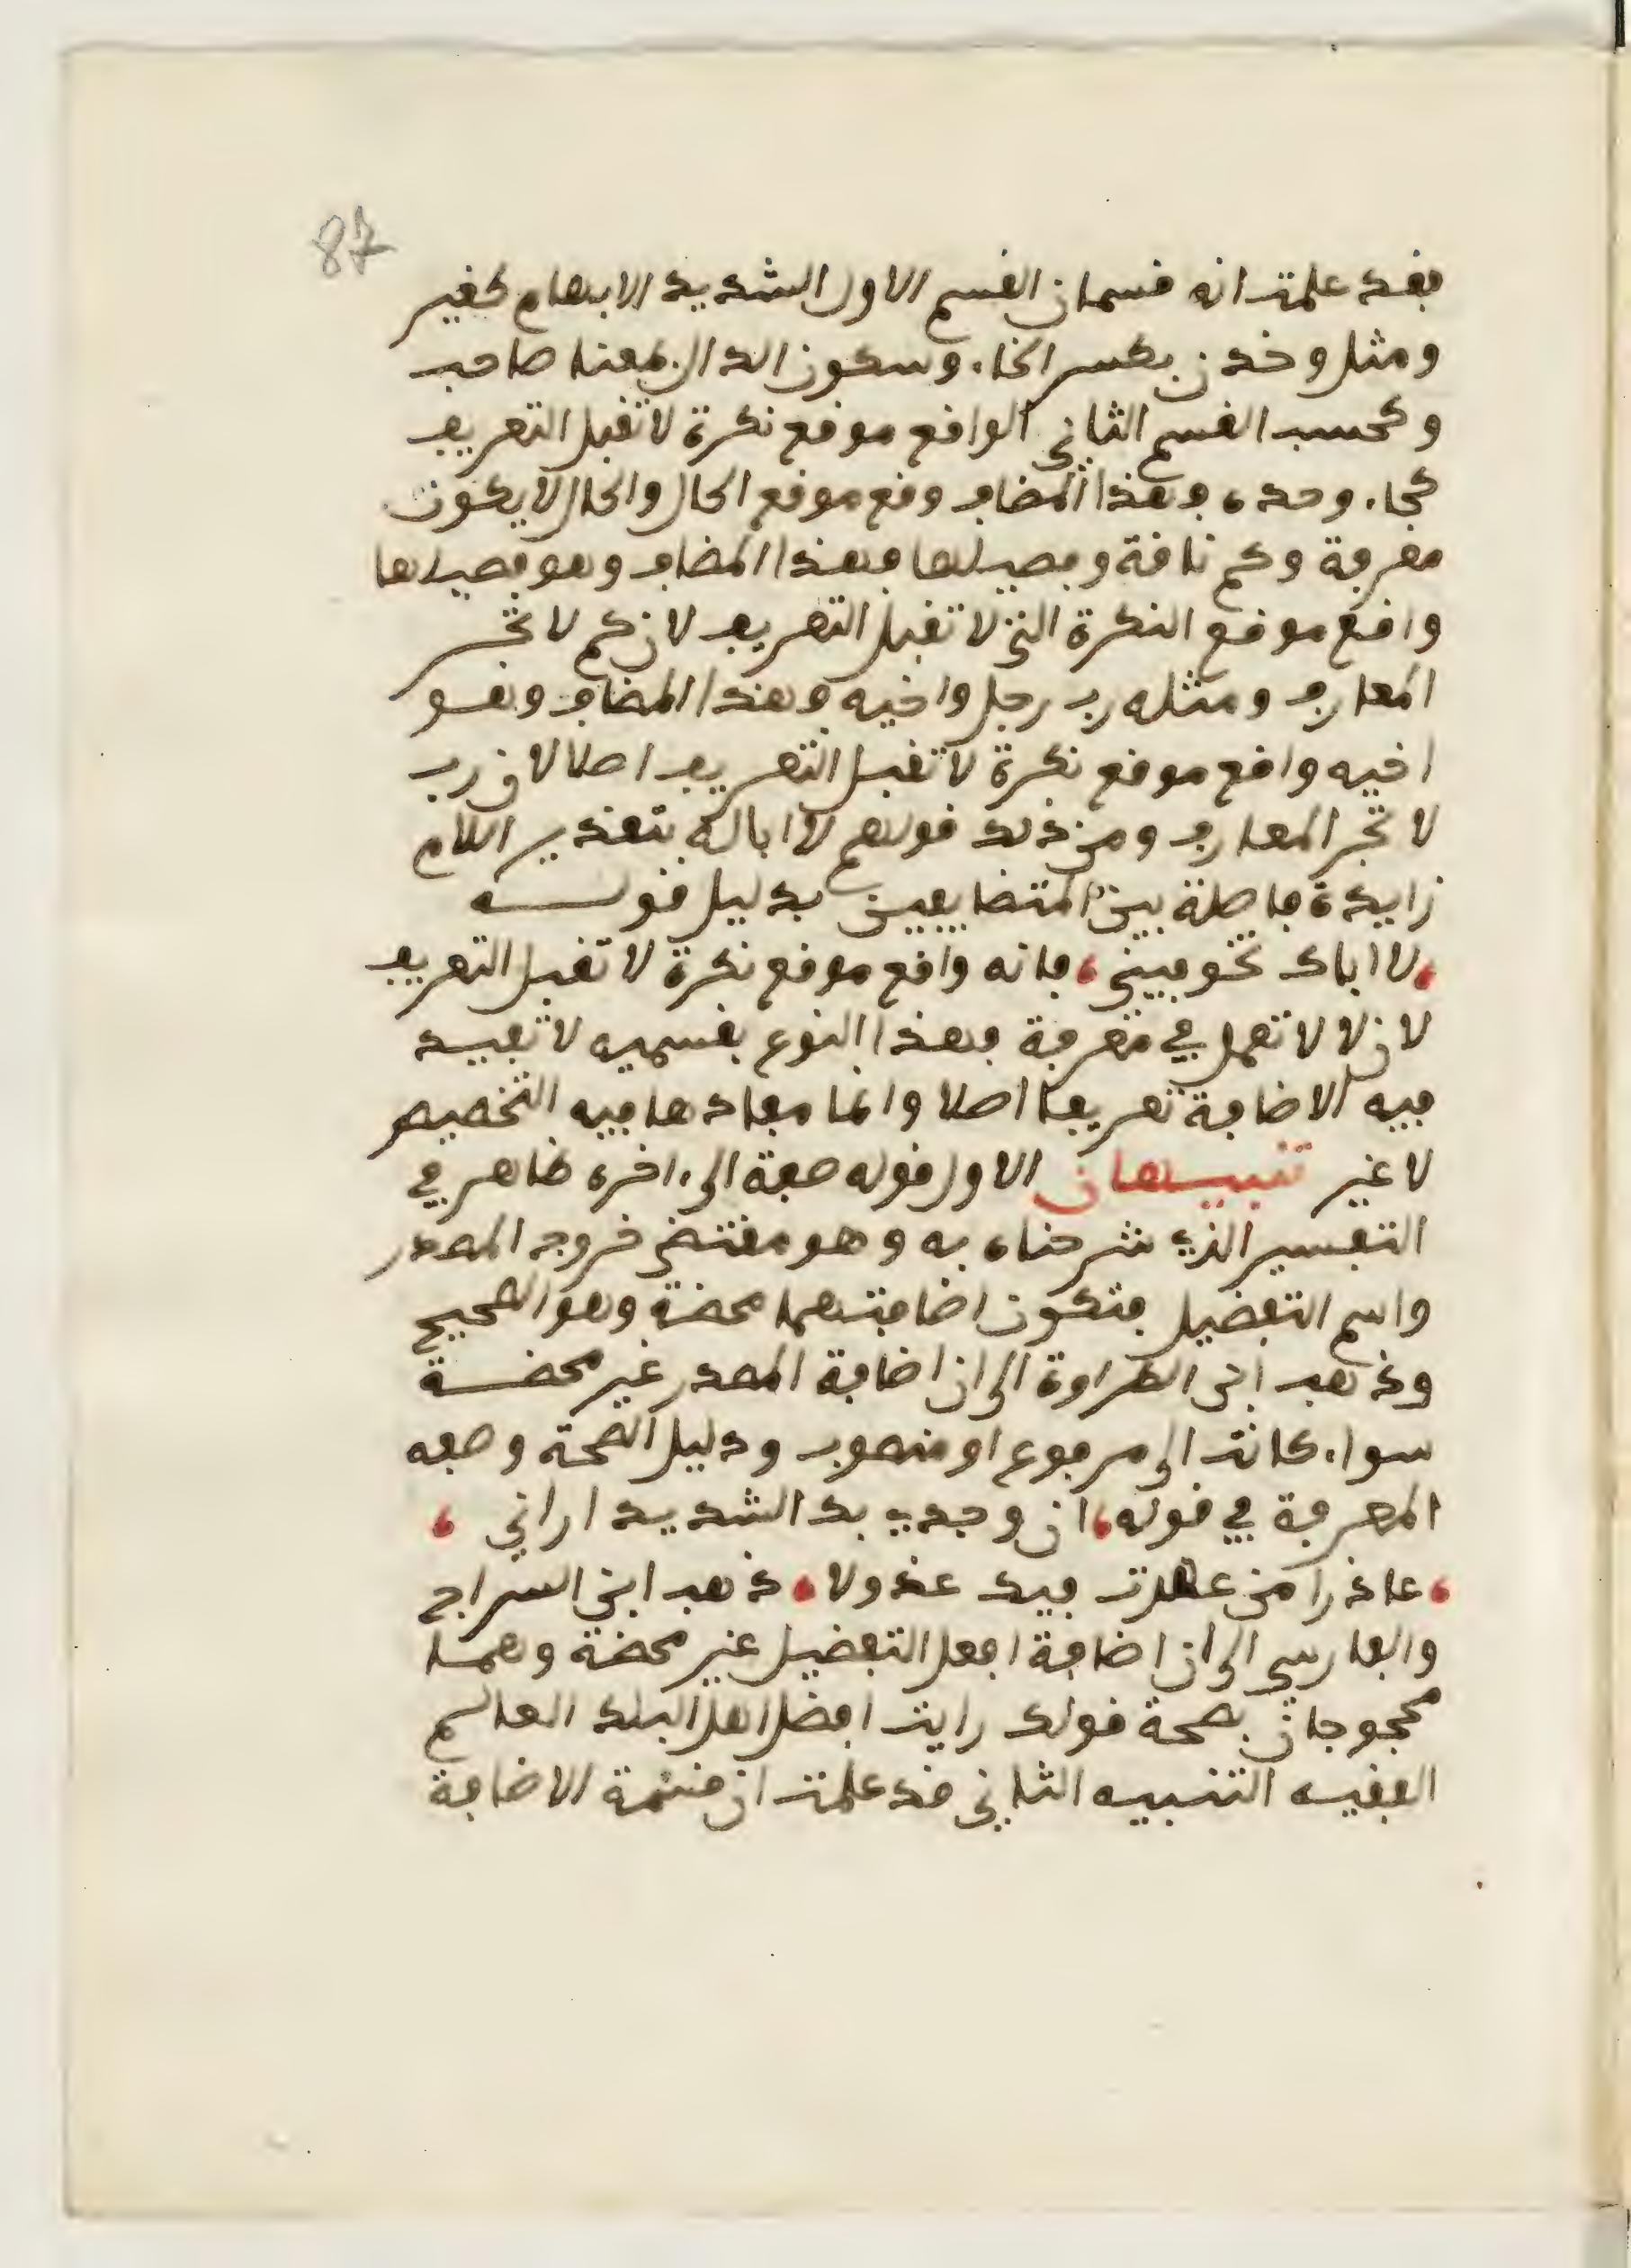 87
فقد علمت انه قسمان القسم الاول الشديد الابهام كغير
ومثل وخدن بكسر الخاء وسكون الدال بمعنا صاحب
وكحسب القسم الثاني الواقع موقع نكرة لا تقبل التعريف
كجاء وحده فهذا المضاف وقع موقع الحال والحال لا يكون
معرفة وكم ناقة وفصيلها فهذا المضاف وهو فصيلها
واقع موقع النكرة التي لا تقبل التعريف لان كم لا تجر
المعارف ومثله رب رجل واخيه فهذا المضاف وهو
اخيه واقع موقع نكرة لا تقبل التعريف اصلا لان رب
لا تجر المعارف ومن ذلك قولهم لا ابا له بتقدير اللام
زايدة فاصلة بين المتضايفين بدليل قوله
، لا اباك تخوفيني ، فانه واقع موقع نكرة لا تقبل التعريف
لان لا لا تعمل في معرفة فهذا النوع بقسميه لا تفيد
فيه الاضافة تعريفا اصلا وانما مفادها فيه التخصيص
لا غير تنبيهان الاول قوله صفة الى ءاخره ظاهر في
التفسير الذي شرحناه به وهو مقتضى خروج المصدر
واسم التفضيل فتكون اضافتهما محضة وهو الصحيح
وذهب ابن الطراوة الى ان اضافة المصدر غير محضة
سواء كانت الى مرفوع او منصوب ودليل الصحة وصفه
المعرفة في قوله ، ان وجدي بك الشديد اراني ،
، عاذرا من عهدت فيك عذولا ، ذهب ابن السراج
والفارسي الى ان اضافة افعل التفضيل غير محضة وهما
محجوجان بصحة قولك رايت افضل اهل البلد العالم
الفقيه التنبيه الثاني قد علمت ان قسمة الاضافة